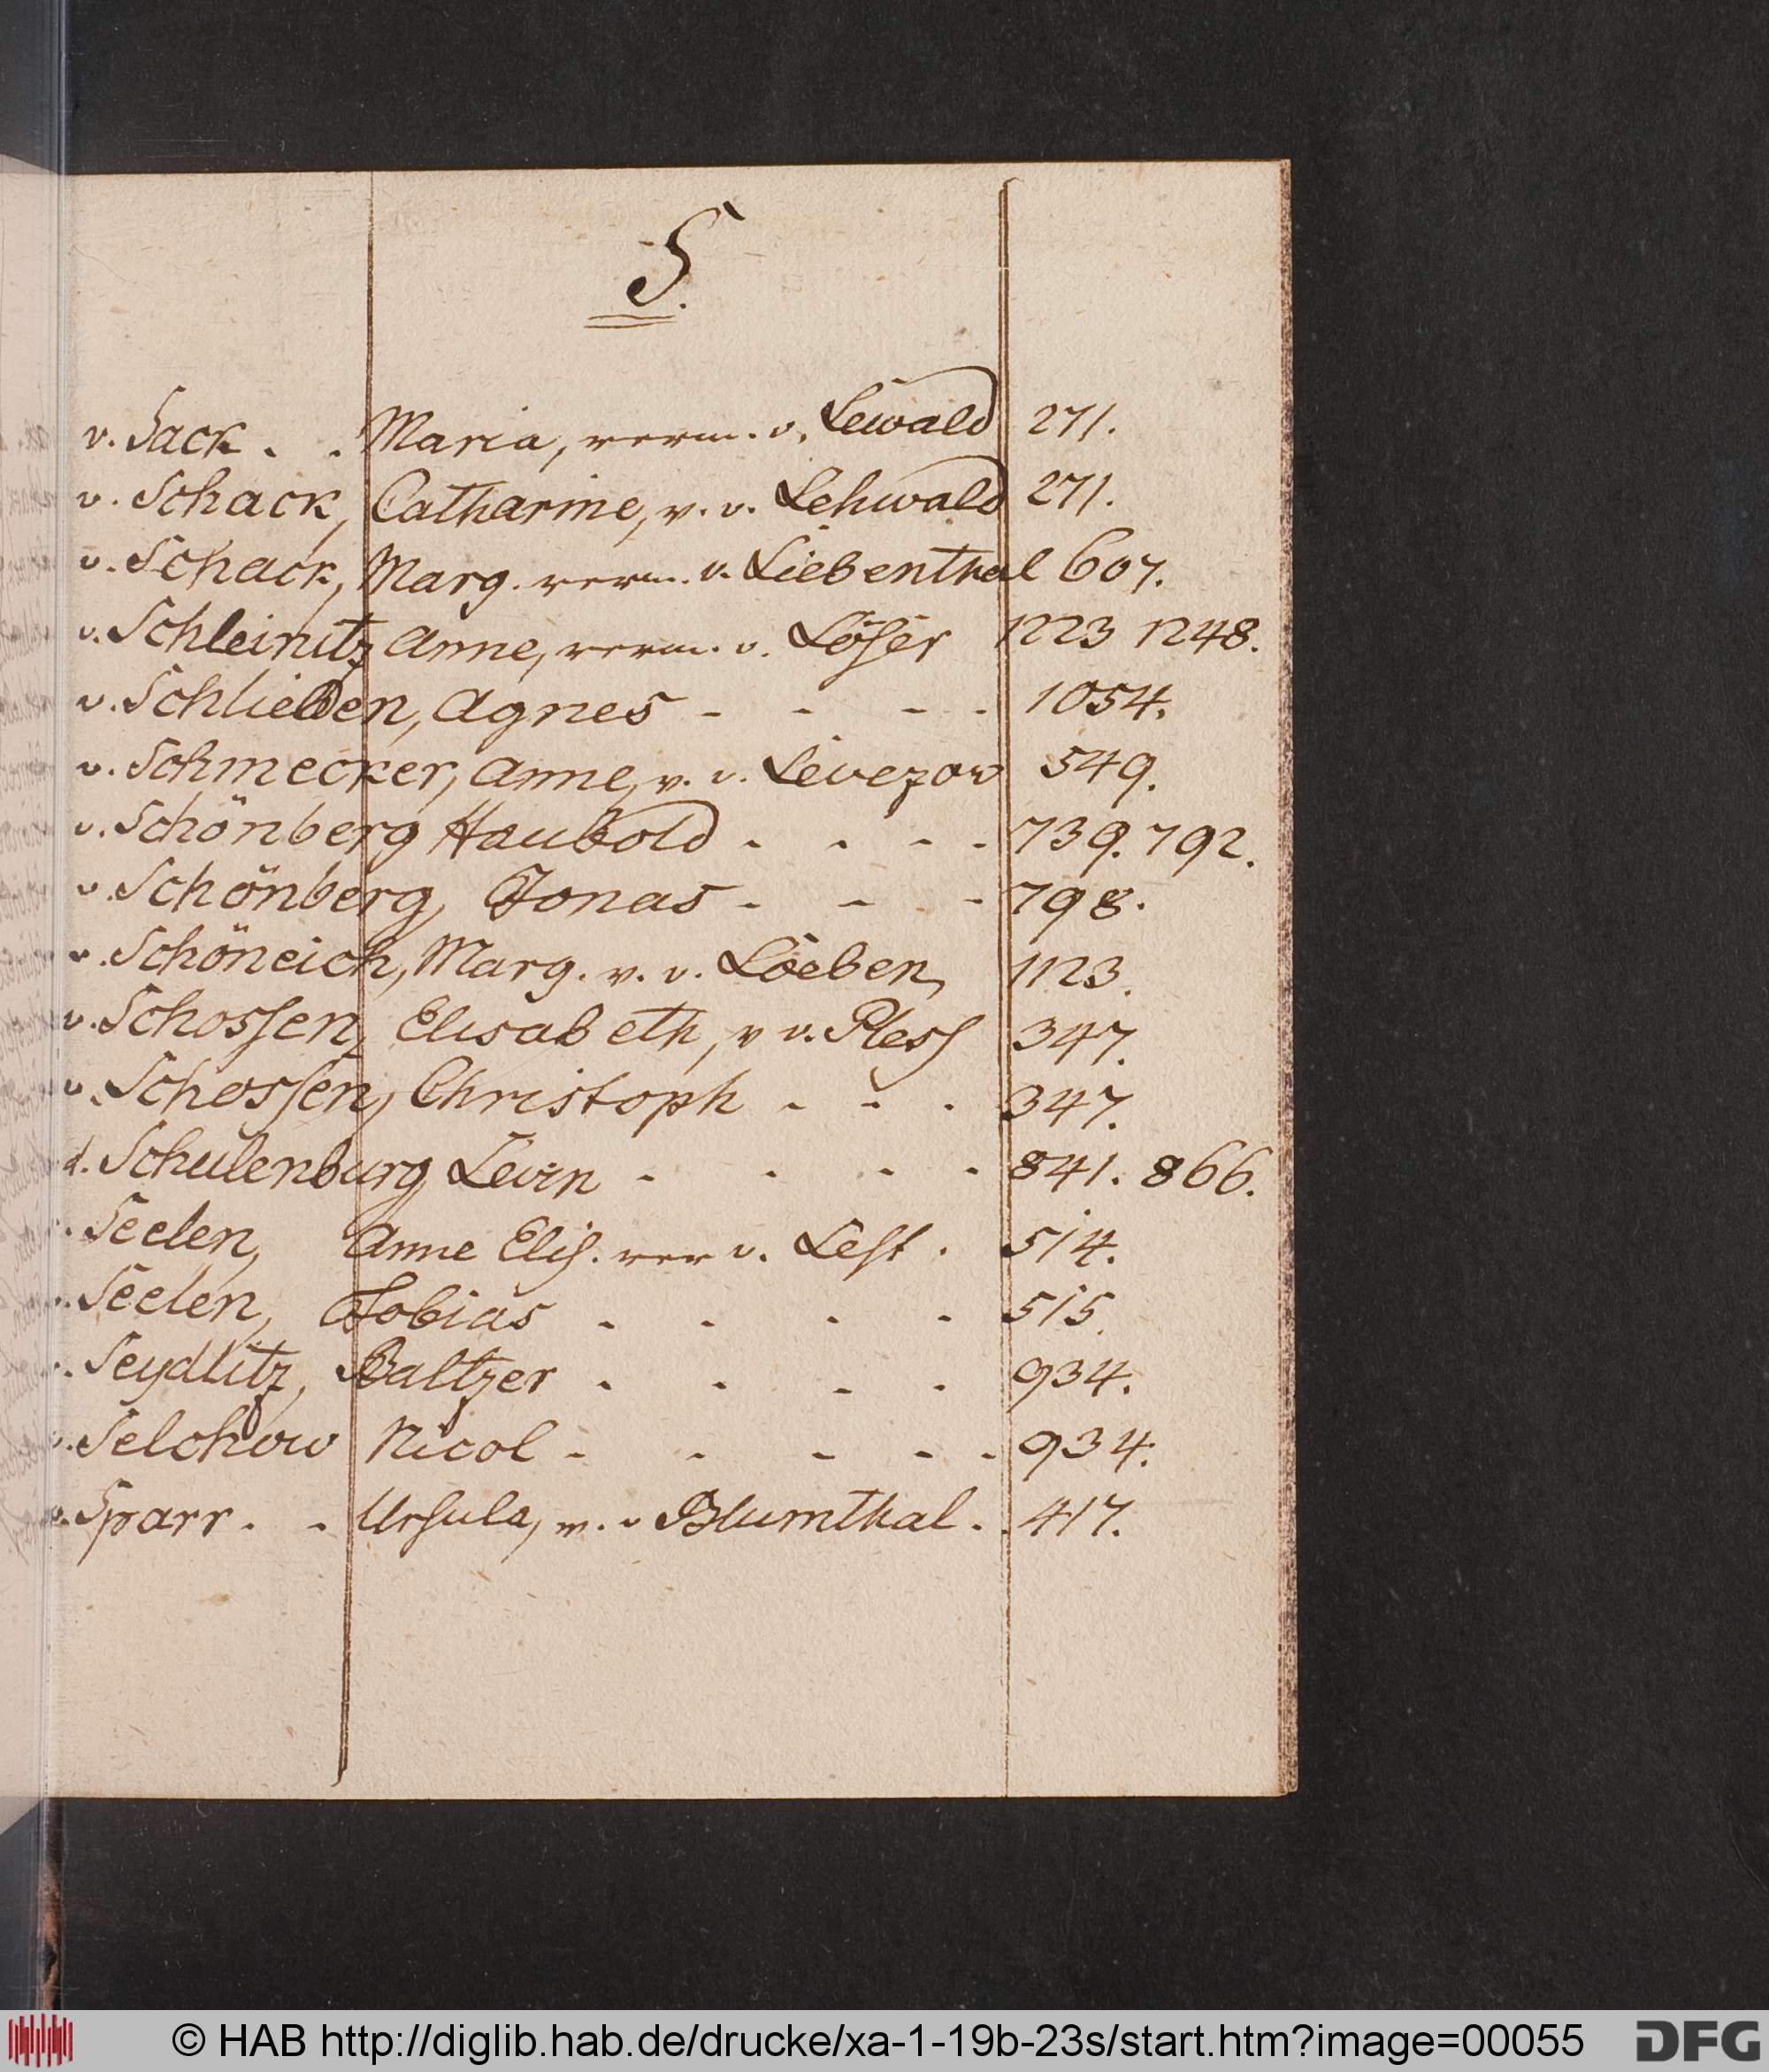 S.
v. Sack . . Maria, verm. v. Lewald 271.
v. Schack, Catharine, v. v. Lehwald 271.
v. Schack, Marg. verm. v. Liebenthal 607.
v. Schleinitz Anne, verm. v. Löser 1223 1248.
v. Schlieben, Agnes - - - - 1054.
v. Schmecker, Anne, v. v. Levezow 549.
v. Schönberg Haubold - - - - 739. 792.
v. Schönberg, Jonas - - - 798.
v. Schöneich, Marg. v. v. Löeben, 1123.
v. Schossen, Elisabeth, v v. Pless 347.
v. Schossen, Christoph - - - 347.
d. Schulenburg Levin - - - - 841. 866.
Seelen, Anne Elis. ver v. Lest . 514.
Seelen, Tobias - - - - 515.
Seydlitz, Baltzer - - - - 934.
v. Selchow Nicol - - - - - 934.
v. Sparr . . Ursula, v. v Blumthal . . 417.
© HAB http://diglib.hab.de/drucke/xa-1-19b-23s/start.htm?image=00055
DFG